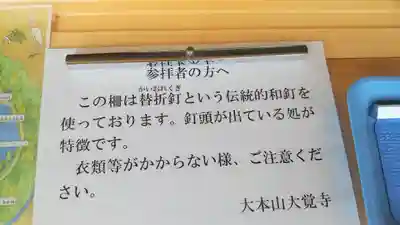 参拝者の方へ
かいおれくぎ
この柵は替折釘という伝統的和釘を
使っております。釘頭が出ている処が
特徴です。
衣類等がかからない様、ご注意くだ
さい。
大本山大覚寺